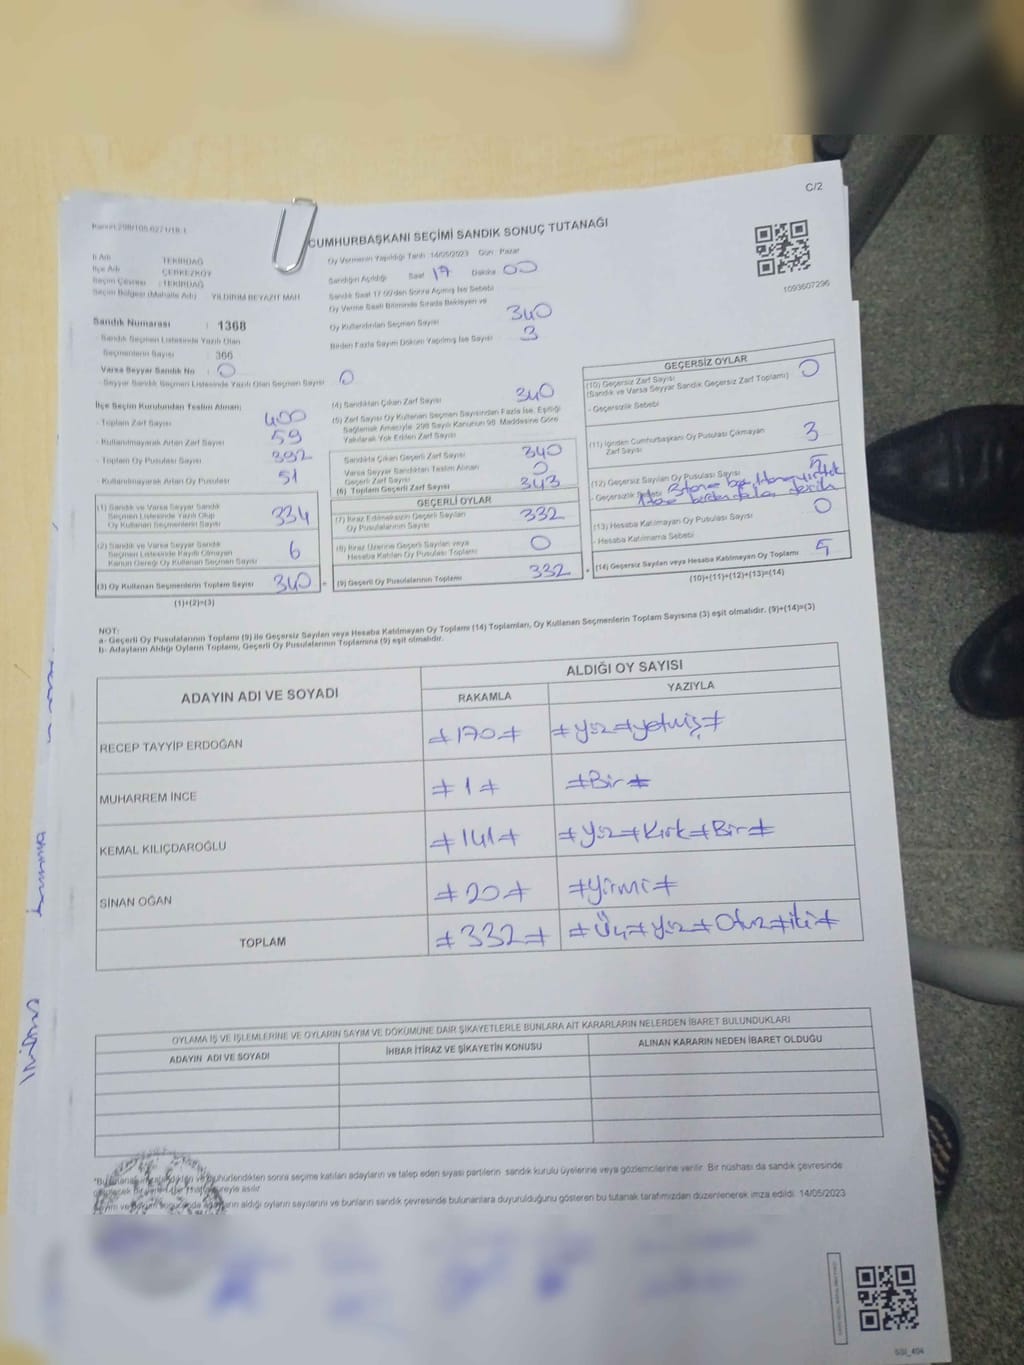 C/2
CUMHURBAŞKANI SEÇİMİ SANDIK SONUÇ TUTANAĞI
1093607296
İl Adı : TEKİRDAĞ
İlçe Adı : ÇERKEZKÖY
Seçim Çevresi : TEKİRDAĞ
Seçim Bölgesi (Mahalle Adı) YILDIRIM BEYAZIT MAH
Oy Vermenin Yapıldığı Tarih 14/05/2023 Gün : Pazar
Sandığın Açıldığı Saat 17 Dakika 00
Sandık Saat 17:00'den Sonra Açılmış İse Sebebi
Oy Verme Saati Bitiminde Sırada Bekleyen ve
Oy Kullandırılan Seçmen Sayısı 340
Birden Fazla Sayım Döküm Yapılmış İse Sayısı 3
Sandık Numarası : 1368
Sandık Seçmen Listesinde Yazılı Olan
Seçmenlerin Sayısı : 366
Varsa Seyyar Sandık No : 0
- Seyyar Sandık Seçmen Listesinde Yazılı Olan Seçmen Sayısı 0
İlçe Seçim Kurulundan Teslim Alınan;
- Toplam Zarf Sayısı 400
- Kullanılmayarak Artan Zarf Sayısı 59
- Toplam Oy Pusulası Sayısı 392
- Kullanılmayarak Artan Oy Pusulası 51
(1) Sandık ve Varsa Seyyar Sandık
Seçmen Listesinde Yazılı Olup
Oy Kullanan Seçmenlerin Sayısı 334
(2) Sandık ve Varsa Seyyar Sandık
Seçmen Listesinde Kayıtlı Olmayan
Kanun Gereği Oy Kullanan Seçmenlerin Sayısı 6
(3) Oy Kullanan Seçmenlerin Toplam Sayısı 340 =
(1)+(2)=(3)
(4) Sandıktan Çıkan Zarf Sayısı 340
(5) Zarf Sayısı Oy Kullanan Seçmen Sayısından Fazla İse, Eşitliği
Sağlamak Amacıyla 298 Sayılı Kanunun 98. Maddesine Göre
Yakılarak Yok Edilen Zarf Sayısı
Sandıkta Çıkan Geçerli Zarf Sayısı 340
Varsa Seyyar Sandıktan Teslim Alınan
Geçerli Zarf Sayısı 0
(6) Toplam Geçerli Zarf Sayısı 343
GEÇERLİ OYLAR
(7) İtiraz Edilmeksizin Geçerli Sayılan
Oy Pusulalarının Sayısı 332
(8) İtiraz Üzerine Geçerli Sayılan veya
Hesaba Katılan Oy Pusulası Toplamı 0
(9) Geçerli Oy Pusulalarının Toplamı 332 +
GEÇERSİZ OYLAR
(10) Geçersiz Zarf Sayısı
(Sandık ve Varsa Seyyar Sandık Geçersiz Zarf Toplamı) 0
- Geçersizlik Sebebi
(11) İçinden Cumhurbaşkanı Oy Pusulası Çıkmayan
Zarf Sayısı 3
(12) Geçersiz Sayılan Oy Pusulası Sayısı 5
- Geçersizlik Sebebi
(13) Hesaba Katılmayan Oy Pusulası Sayısı 0
- Hesaba Katılmama Sebebi
(14) Geçersiz Sayılan veya Hesaba Katılmayan Oy Toplamı 5
(10)+(11)+(12)+(13)=(14)
NOT:
a- Geçerli Oy Pusulalarının Toplamı (9) ile Geçersiz Sayılan veya Hesaba Katılmayan Oy Toplamı (14) Toplamları, Oy Kullanan Seçmenlerin Toplam Sayısına (3) eşit olmalıdır. (9)+(14)=(3)
b- Adayların Aldığı Oyların Toplamı, Geçerli Oy Pusulalarının Toplamına (9) eşit olmalıdır.
ADAYIN ADI VE SOYADI
ALDIĞI OY SAYISI
RAKAMLA YAZIYLA
RECEP TAYYİP ERDOĞAN ≠170≠ ≠Yüz≠yetmiş≠
MUHARREM İNCE ≠1≠ ≠Bir≠
KEMAL KILIÇDAROĞLU ≠141≠ ≠Yüz≠Kırk≠Bir≠
SİNAN OĞAN ≠20≠ ≠Yirmi≠
TOPLAM ≠332≠ ≠Üç≠yüz≠Otuz≠iki≠
OYLAMA İŞ VE İŞLEMLERİNE VE OYLARIN SAYIM VE DÖKÜMÜNE DAİR ŞİKAYETLERLE BUNLARA AİT KARARLARIN NELERDEN İBARET BULUNDUKLARI
ADAYIN ADI VE SOYADI İHBAR İTİRAZ VE ŞİKAYETİN KONUSU ALINAN KARARIN NEDEN İBARET OLDUĞU
sonra seçime katılan adayların ve talep eden siyasi partilerin sandık kurulu üyelerine veya gözlemcilerine verilir. Bir nüshası da sandık çevresinde
aldığı oyların sayılarını ve bunların sandık çevresinde bulunanlara duyurulduğunu gösteren bu tutanak tarafımızdan düzenlenerek imza edildi. 14/05/2023